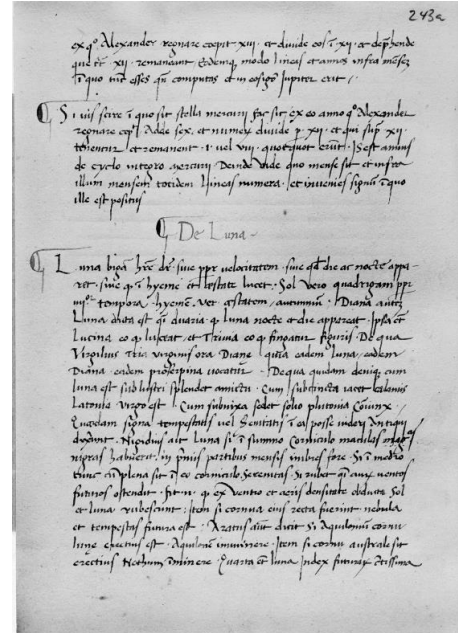 243a
ex qo Alexander regnare coepit xiii. et divide eos i xij. et
que xij. remaneant. Eodemque modo lineas et annos infra menses
i quo tunc esses computas et in eo signo Jupiter erit
Si vis scire i quo sit stella mercurii fac sic, ex eo anno qo Alexander
regnare Adde sex, et numerum divide p xij. et qui sup xij.
et remanent. i. vel vij. quotquot Is est annus
de cyclo integro mercurii Deinde vide quo mense sit et infra
illum mensem totidem lineas numera. et invenies signum i quo
ille est positus
De Luna
Luna bigam dr. sive ppr velocitatem. sive die ac nocte appa
ret. sive i hyeme et estate lucet. Sol vero quadrigam ppr
iiijor tempora. hyemem. ver. estatem. autumnum. Diana
Luna dicta est duaria. q luna nocte et die appareat. Ipsa et
Lucina eo q luceat. et Trima eo q fingatur figuris. De qua
Virgilius Tria virginis ora Diane quia eadem luna, eadem
Diana. eadem proserpina vocatur De qua quidam deniq cum
luna est sublustri splendet amictu. Cum subcincta iacet calamis
Latonia virgo est Cum subnixa sedet solio plutonia Coniunx.
Quaedam signa tempestatis vel serenitatis i ea posse videri Antiqui
dixerunt. Nigidius ait Luna si i summo Corniculo maculas
nigras habuerit. in primis partibus mensis imbres fore. Si i medio
tunc plena sit i eo corniculo Serenitas. Si rubet auri ventos
futuros ostendit. q ex ventio et aeris densitate obducta Sol
et luna rubescunt. item Si cornua eius recta fuerint. nebula
et tempestas futura est. Aratus dicit Si Aquilonium cornu
lune erectius est. Aquilonem imminere. Item si cornu australe sit
erectius Nothum iminere Quarta et luna Index futurarum Certissima